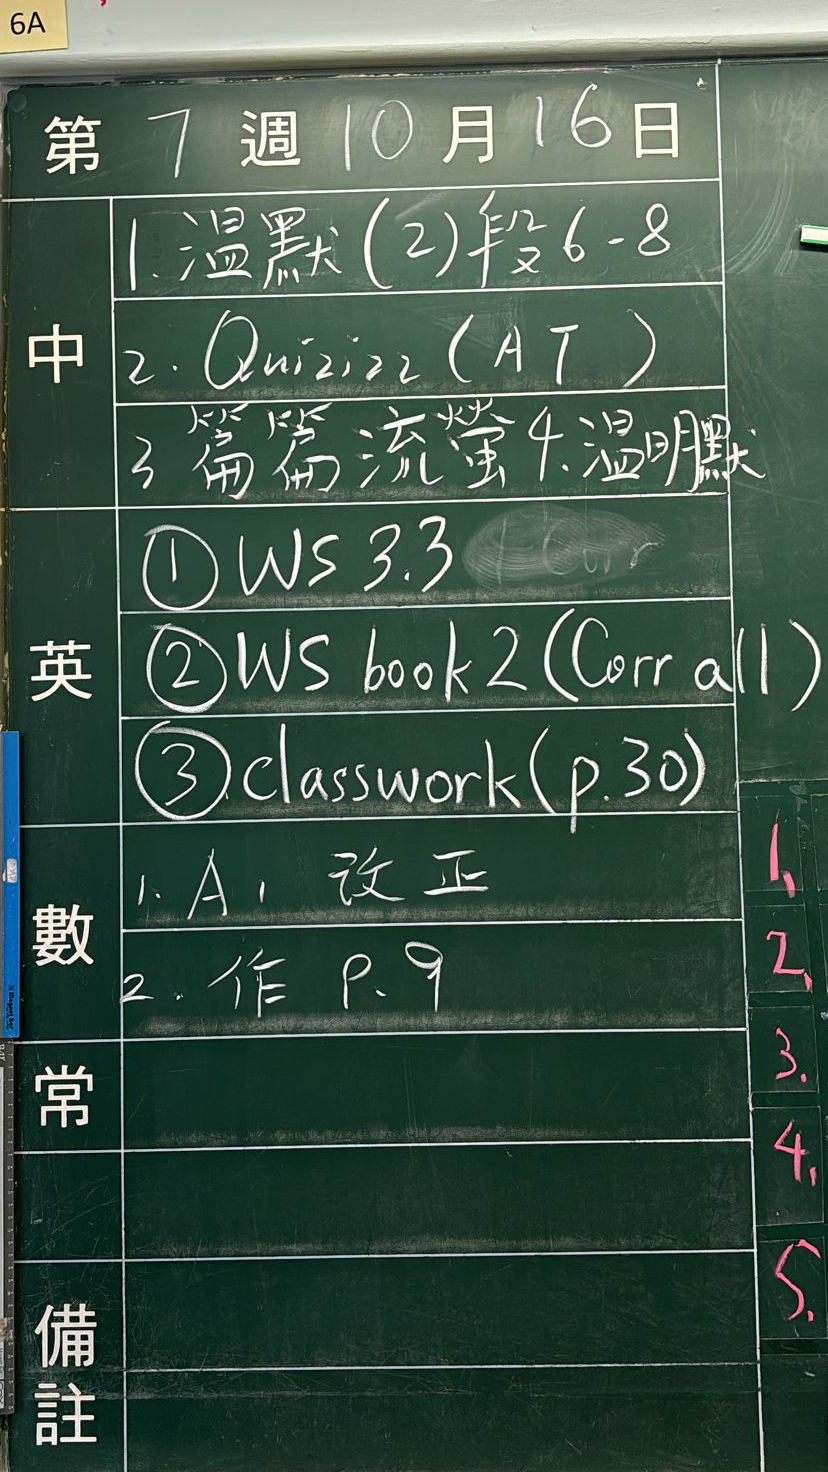 6A
第 7 週 10 月 16 日
中
1. 溫默(2)段6-8
2. Quizizz (AT)
3 篇篇流螢 4. 溫明默
英
① WS 3.3
② WS book 2 (Corr all)
③ classwork (p.30)
數
1. A1 改正
2. 作 P.9
常
備註
1.
2.
3.
4.
5.